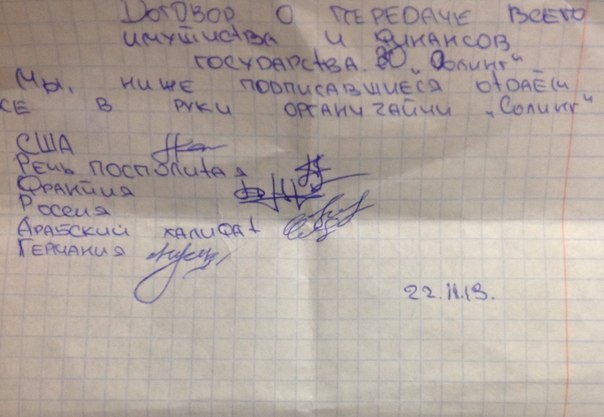 Договор о передаче всего
имушиства и финансов
государства "Солинг"
Мы, ниже подписавшиеся отдаём
се в руки органичайии "Солинг"
США
Речь посполитая
Франйия
Россия
Арабский халифат
Германия
22.11.13.